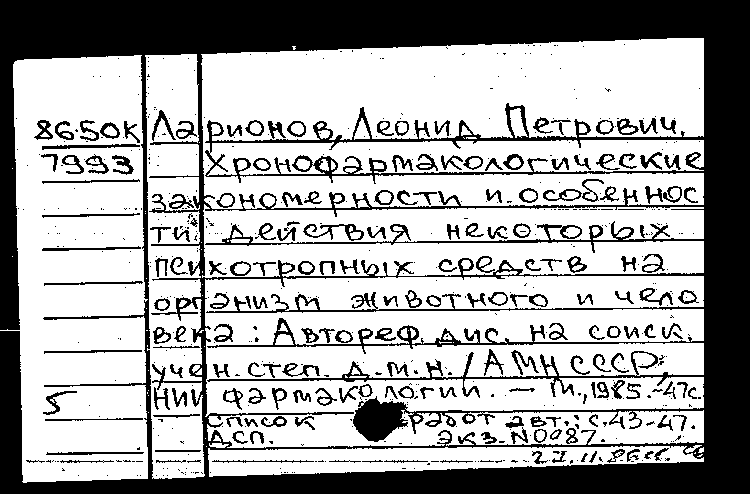 86-50К Ларионов, Леонид Петрович.
7993 Хронофармакологические
закономерности и особеннос
ти действия некоторых
психотропных средств на
организм животного и чело
века : Автореф. дис. на соиск.
учен. степ. д.м.н. / АМН СССР,
5 НИИ фармакологии. — М., 1985.-47с.
Список работ авт.: с.43-47.
ДСП. Экз. N0087.